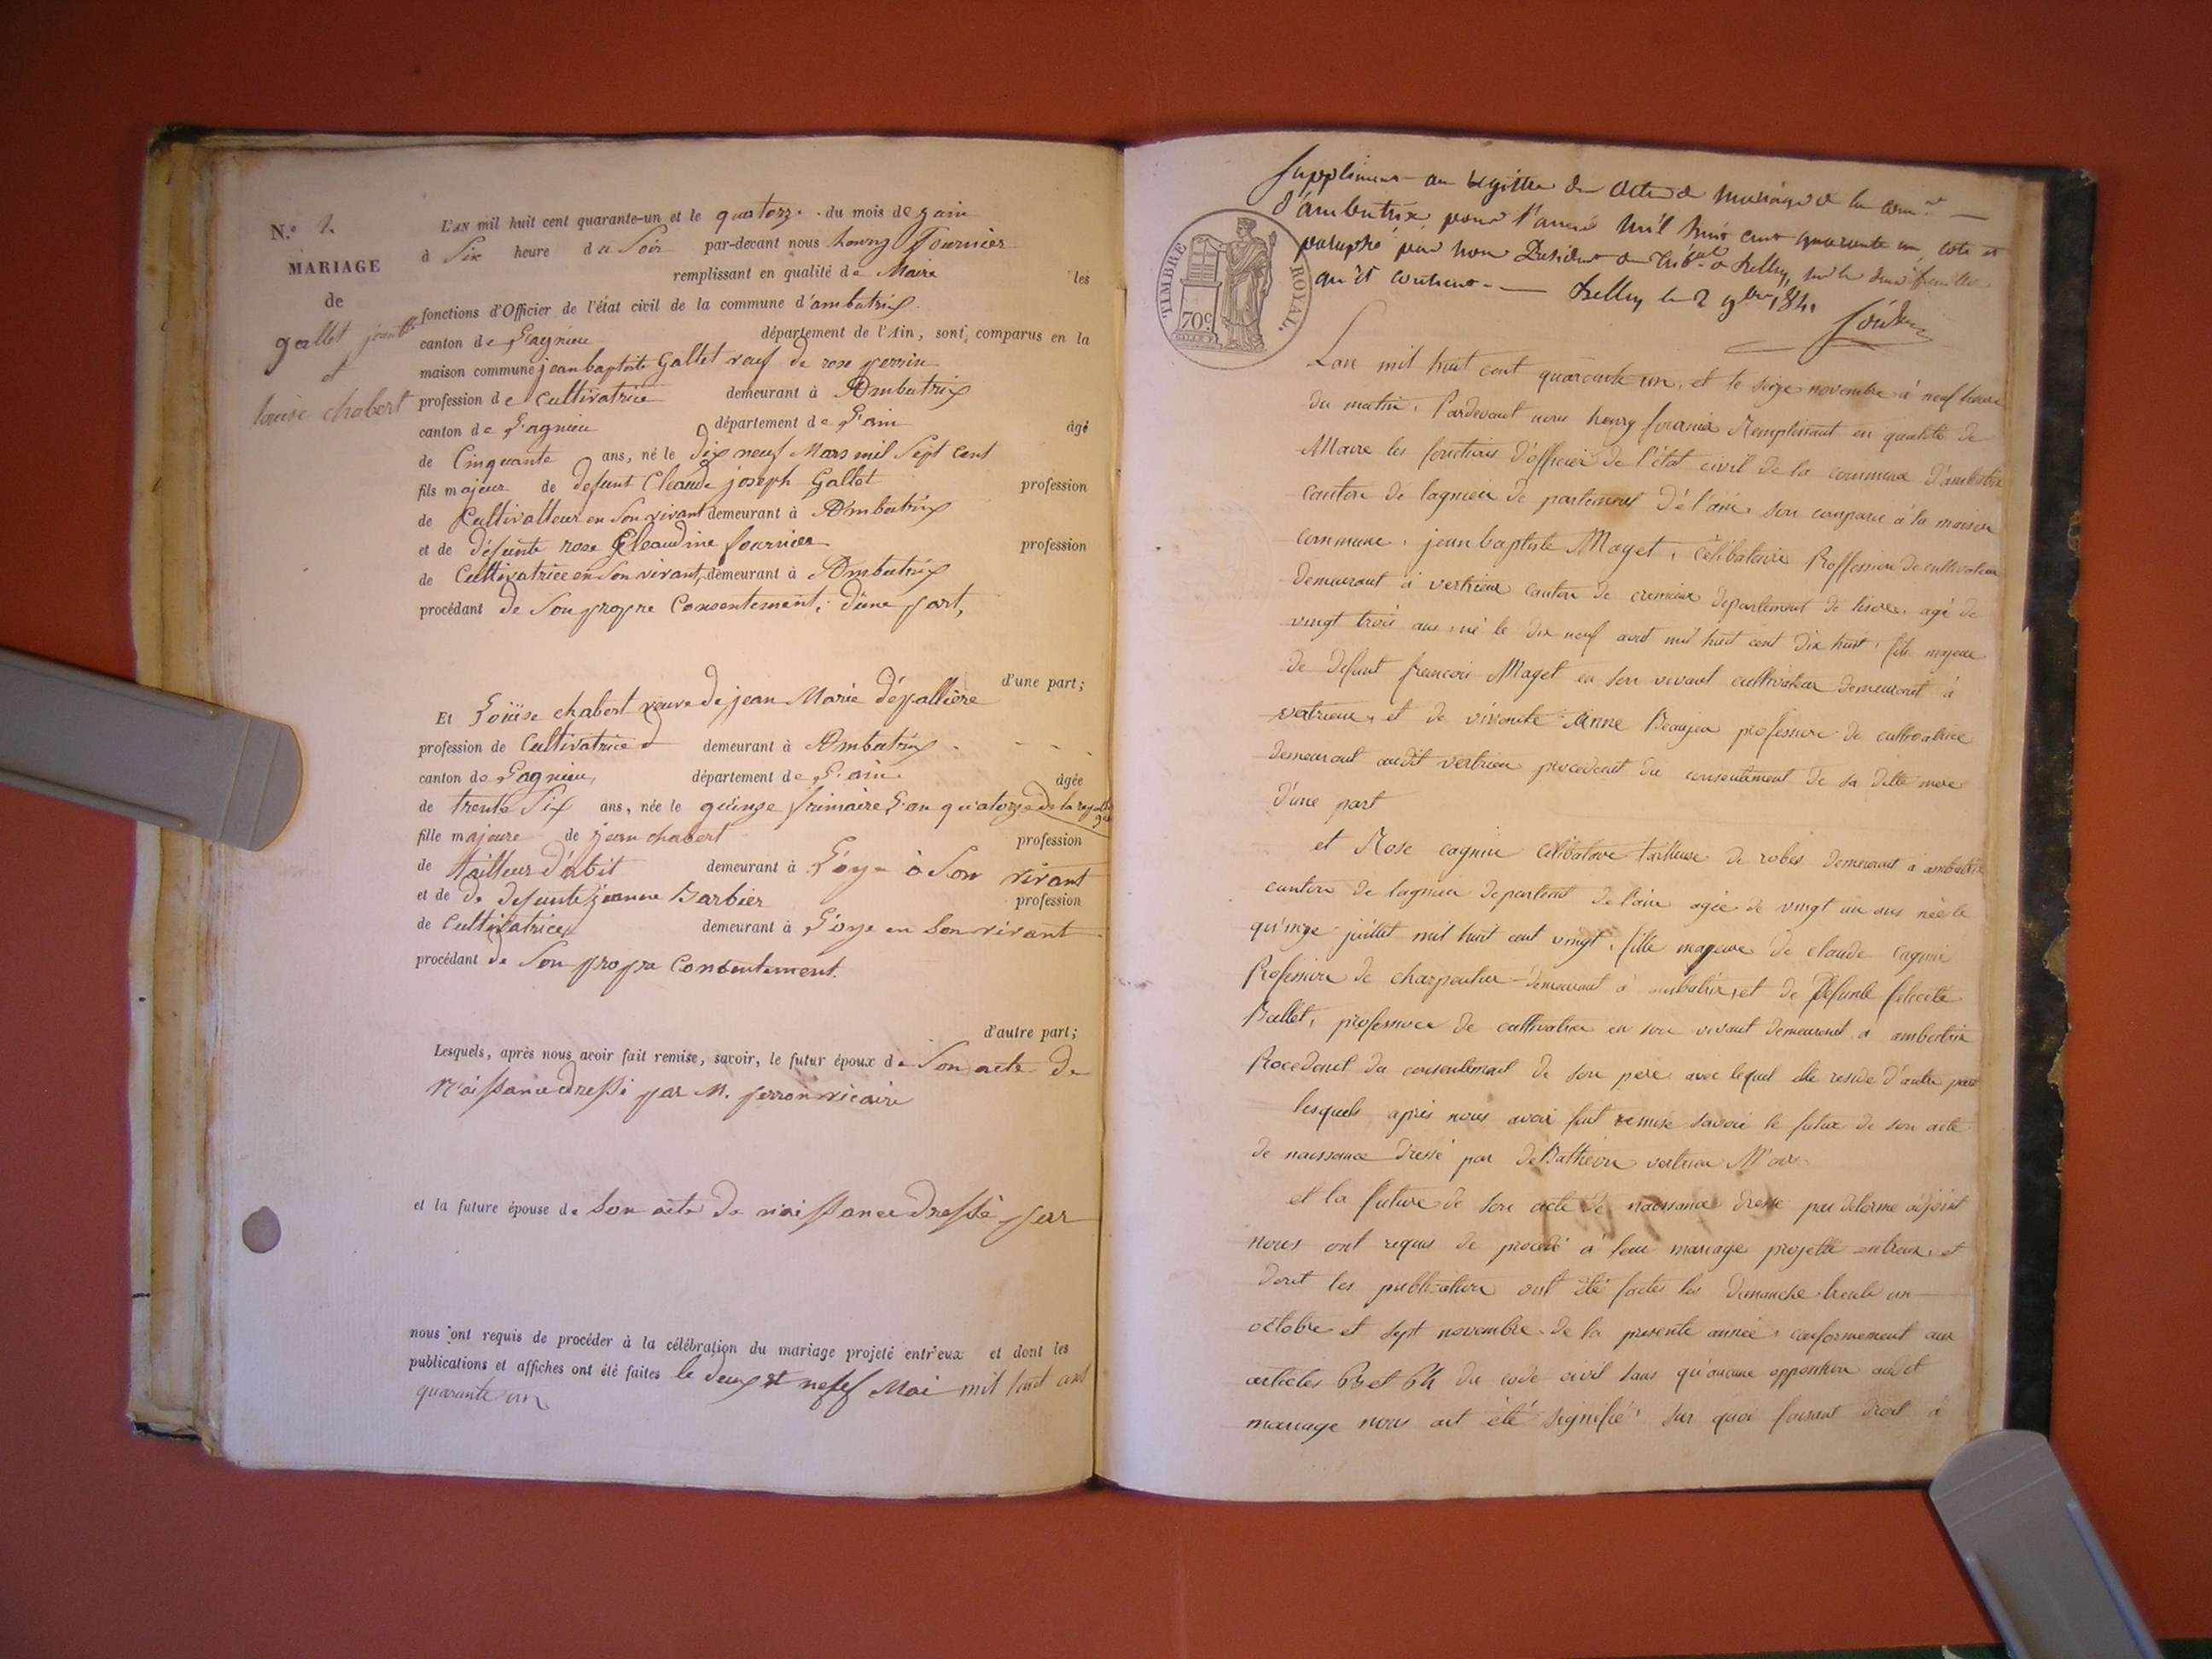 N.° 2.
MARIAGE
de
gallet jean bte
et
louise chabert
L'AN mil huit cent quarante-un et le quatorze du mois de juin
à Six heure du Soir par-devant nous henry Fournier
remplissant en qualité de Maire les
fonctions d'Officier de l'état civil de la commune d'ambutrix
canton de Lagnieu département de l'Ain, sont comparus en la
maison commune jean baptiste Gallet veuf de rose perrin
profession de Cultivatrice demeurant à Ambutrix
canton de Lagnieu département de L'ain âgé
de Cinquante ans, né le dix neuf Mars mil Sept Cent
fils majeur de defunt Cleaude joseph Gallet profession
de Cultivatteur en Son vivant demeurant à Ambutrix
et de défunte rose Cleaudine fournier profession
de Cultivatrice en Son vivant, demeurant à Ambutrix
procédant de Son propre Consentement, d'une part,
d'une part;
Et Loüise chabert veuve de jean Marie dépallière
profession de Cultivatrice demeurant à Ambutrix
canton de Lagnieu département de L'ain âgée
de trente Six ans, née le quinze frimaire L'an quatorze de la
fille majeure de jean chabert profession
de tailleur d'abit demeurant à L'oye à Son vivant
et de de defunte jeanne Barbier profession
de Cultivatrice demeurant à L'oye en Son vivant
procédant de Son propre Consentement.
d'autre part;
Lesquels, après nous avoir fait remise, savoir, le futur époux de Son acte de
Naissance dressé par M. perron vicaire
et la future épouse de Son acte de naissance dressé par
nous ont requis de procéder à la célébration du mariage projeté entr'eux et dont les
publications et affiches ont été faites le deux et neuf Mai mil huit cent
quarante un
TIMBRE ROYAL.
70c
Supplément au registre des actes de mariage de la comne
d'ambutrix, pour l'année mil huit cent quarante un, coté et
paraphé par nous Président du tribal de Belley, sur les deux feuilles
qu'il contient. Belley le 2 9bre 1841
Lan mil huit cent quarante un, et le seize novembre à neuf heure
du matin. Pardevant nous henry fournier Remplissant en qualité de
Maire les fonctions d'officier de l'état civil de la commune d'ambutrix
canton de lagnieu de partement dé l'ain. son comparu à la maison
commune. jean baptiste Maget, célibataire Proffession de cultivateur
demeurant à vertrieu canton de cremieu departement de lisere. agé de
vingt trois ans, né le dix neuf aout mil huit cent dix huit, fils majeur
de defunt francois Maget en son vivant cultivateur demeurant à
vertrieu, et de vivante Anne Beaujea profession de cultivatrice
demeurant audit vertrieu procedent du consentement de sa ditte mere
d'une part
et Rose cagnin célibataire tailleuse de robes demeurant a ambutrix
canton de lagnieu departent de l'ain agée de vingt un ans née le
quinze juillet mil huit cent vingt, fille majeure de claude cagnin
Profession de charpentier demeurant à ambutrix, et de Defunte felecité
Ballet, profession de cultivatrice en son vivant demeurant a ambutrix
Procedant du consentement de son pere avec lequel elle reside d'autre part
lesquels après nous avoir fait remise savoir le futur de son acte
de naissance dressé par deBathéon vertrieu M'aire
et la future de son acte de naissance dresse par delorme adjoint
nous ont requis de procedé à leur mariage projetté entreux, et
dont les publication ont été faites les dimanche trente un
octobre et sept novembre de la presente année, conformement aux
articles 63 et 64 du code civil sans qu'aucune opposition audit
mariage nous ait été signifié, sur quoi faisant droit à